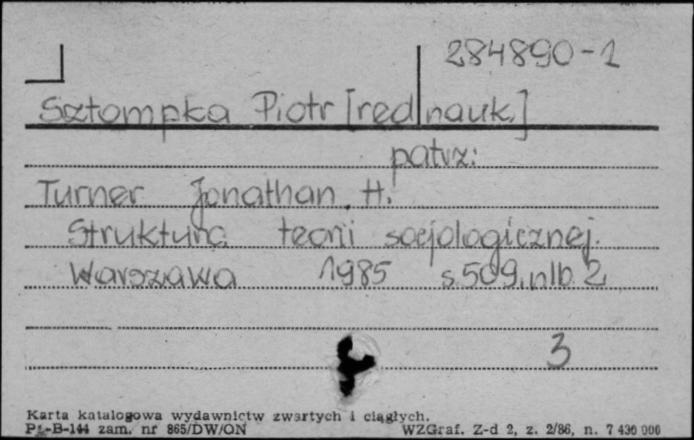 284890-1
Sztompka Piotr [red nauk.]
patrz:
Turner Jonathan H.
Struktura teorii socjologicznej.
Warszawa 1985 s. 509, nlb. 2
3
Karta katalogowa wydawnictw zwartych i ciągłych.
Pu-B-144 zam. nr 865/DW/ON WZGraf. Z-d 2, z. 2/86, n. 7 430 000